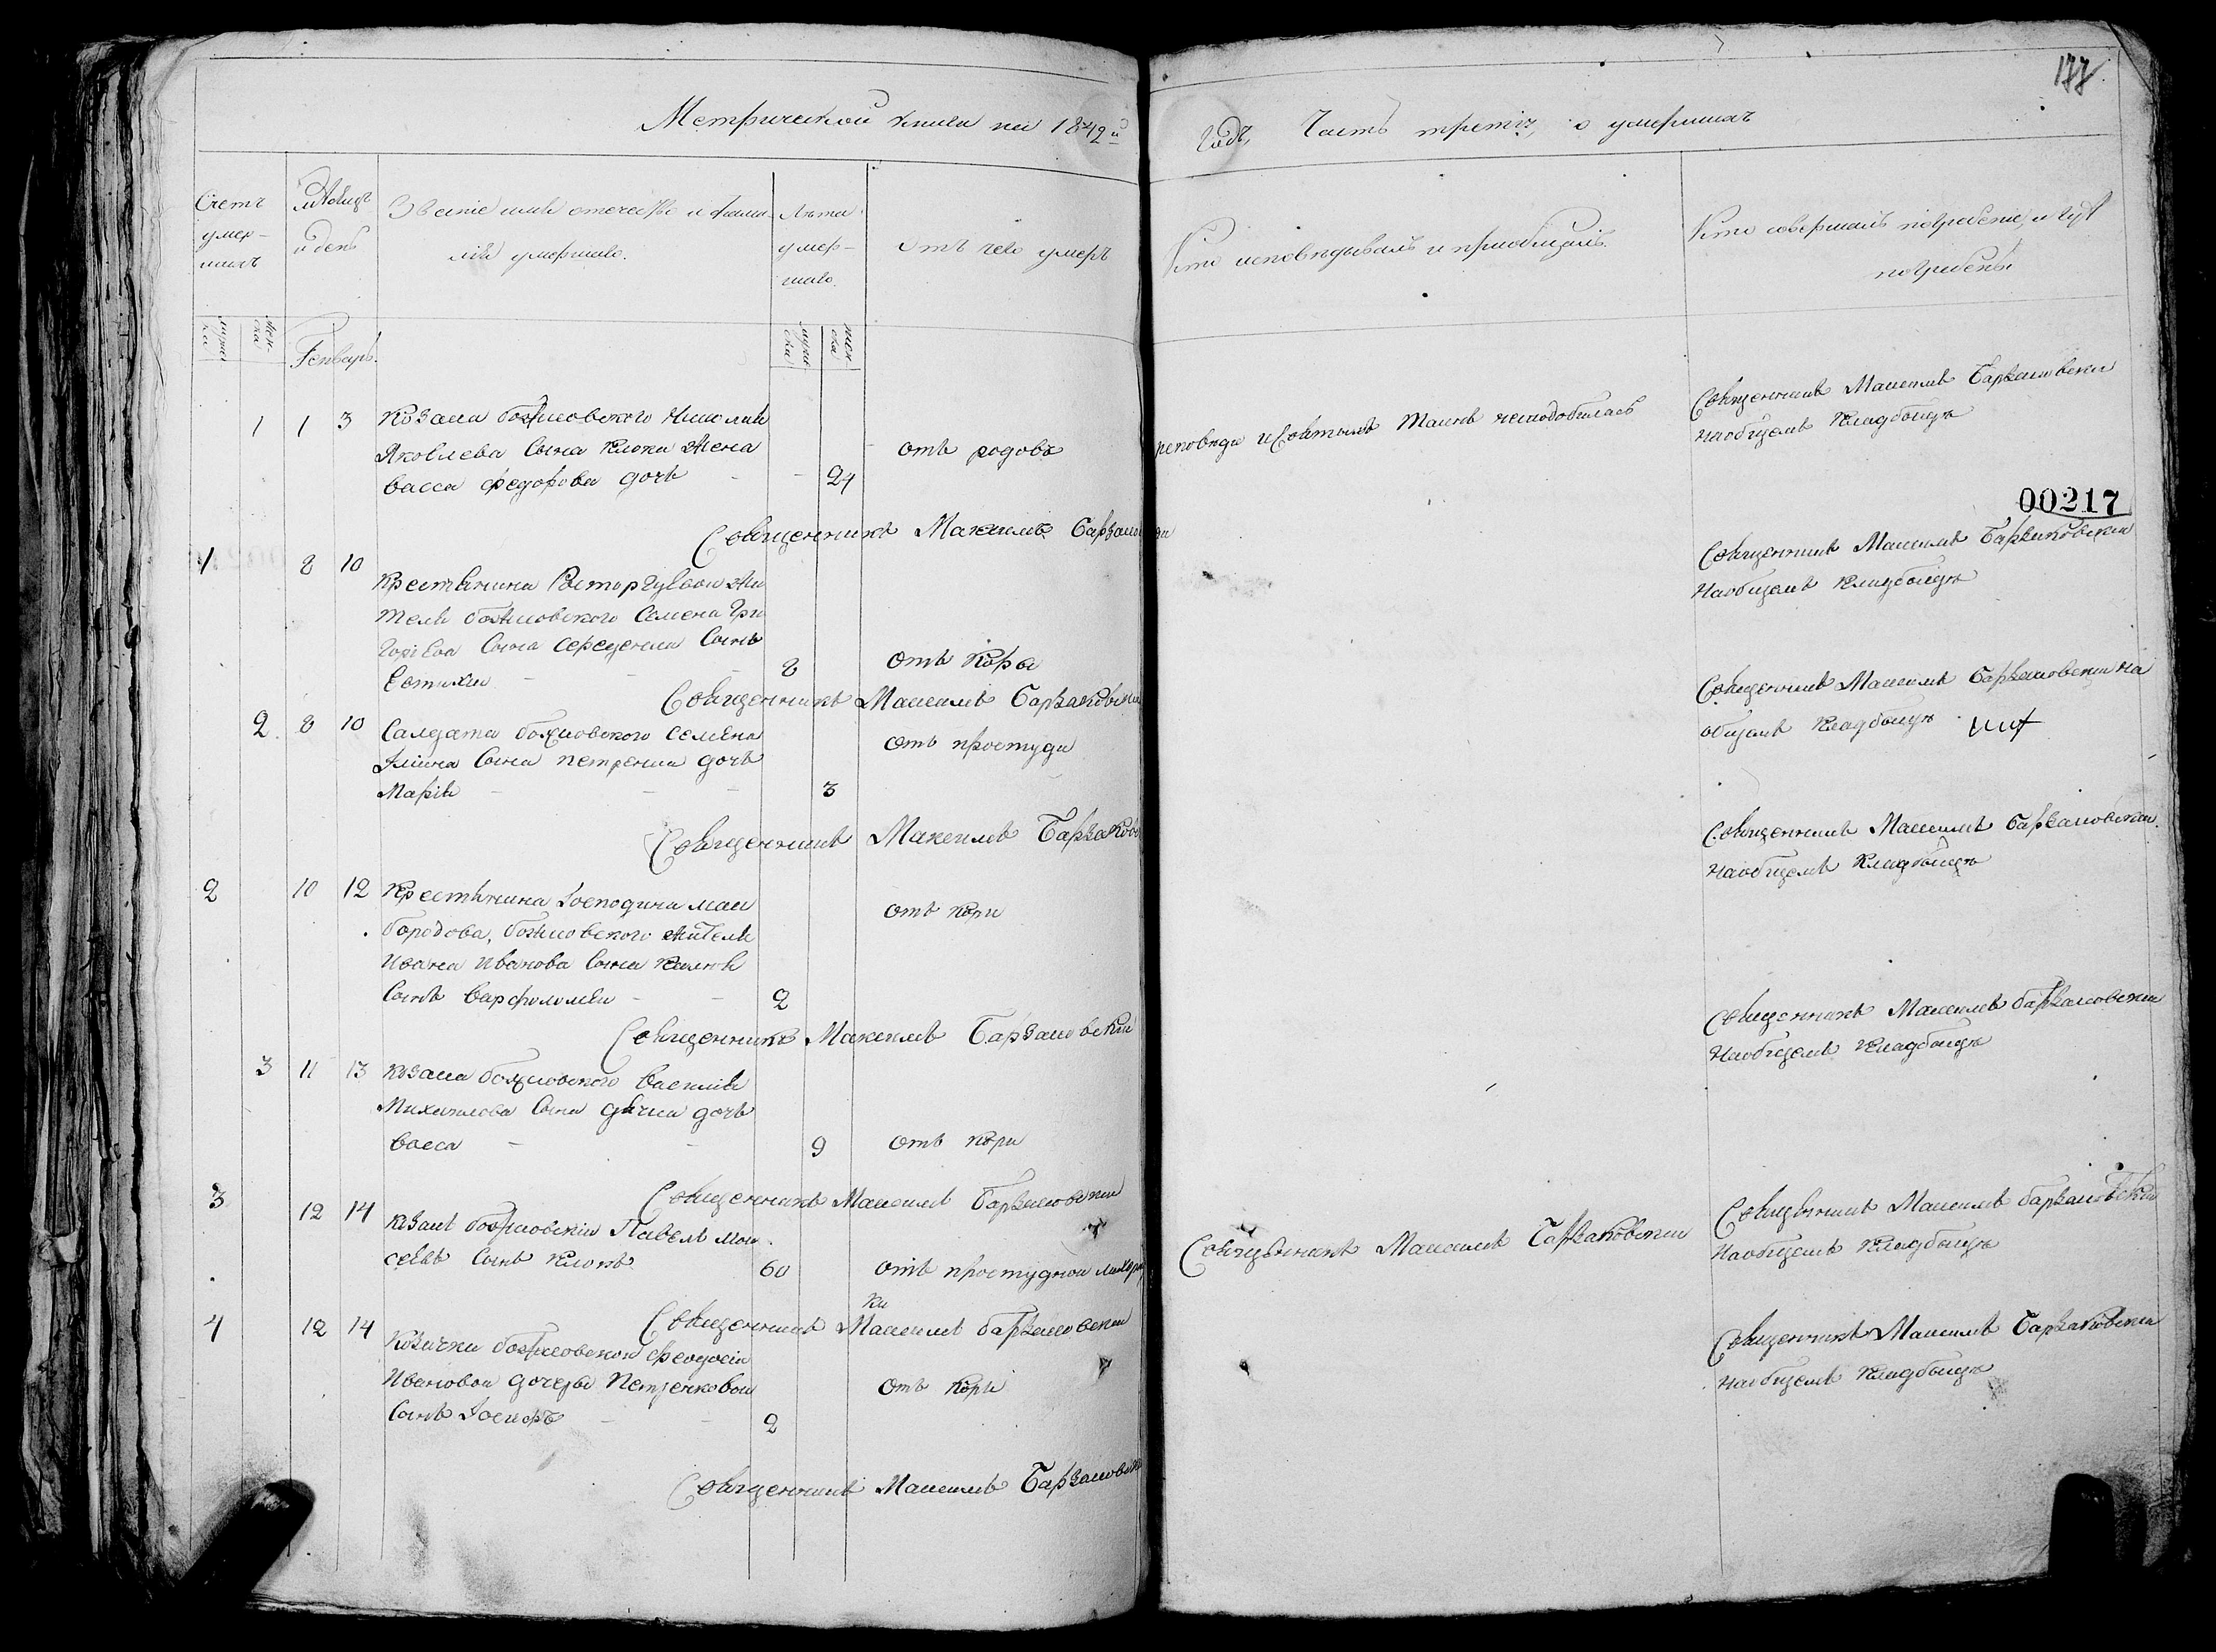 177
Метрической книги на 1842й
годъ, Часть третія, о умершихъ
Счетъ умер-
шихъ
Мѣсяцъ
и день
Званіе имя отечество и фами-
лія умершаго.
Лѣта
умер-
шаго.
отъ чего умеръ
Кто исповѣдывалъ и приобщалъ.
Кто совершалъ погребеніе, и гдѣ
погребены
Генварь.
1 1 3 Козака
Яковлева Сына Клюки Жена
Васса Федорова дочь 24
отъ родовъ
исповѣди и Святыхъ Таинъ неподобилась
Священникъ Максимъ Барзаковски
наобщемъ Кладбищѣ
00217
Священникъ Максимъ Барзаковски
1 8 10
Крестьянина Расторгуевои Жи
теля Семена Гри
горіева Сына Середенка Сынъ
Евтихи 8
Отъ Кори
Священникъ Максимъ Барзаковски
Наобщемъ Кладбищѣ
Священникъ Максимъ Барзаковски
2 8 10 Салдата Семена
Ильина Сына Петренка дочь
Марія 3
отъ простуди
Священникъ Максимъ Барзаковски на
общемъ Кладбищѣ
Священникъ Максимъ Барзаково
2 10 12 Крестьянина Господина
бородова, жителя
Ивана Иванова Сына
Сынъ Варфоломѣи 2
отъ кори
Священникъ Максимъ Барзаковски
наобщемъ Кладбищѣ
Священникъ Максимъ Барзаковски
3 11 13 Козака Василія
Михаилова Сына дочь
Васса 9
отъ кори
Священникъ Максимъ Барзаковски
Наобщемъ Кладбищѣ
Священникъ Максимъ Барзаковски
3 12 14 Козакъ Павелъ Мои
сеевъ Сынъ Клюка 60
отъ простуднои лихора
ки
Священникъ Максимъ Барзаковски
Священникъ Максимъ Барзаковски
Наобщемъ Кладбищѣ
Священникъ Максимъ Барзаковски
4 12 14
Козачки Феодосіи
Ивановои дочери Петренковои
Сынъ Іосифъ 2
Отъ Кори
Священникъ Максимъ Барзаковски
Наобщемъ Кладбищѣ
Священникъ Максимъ Барзаковски